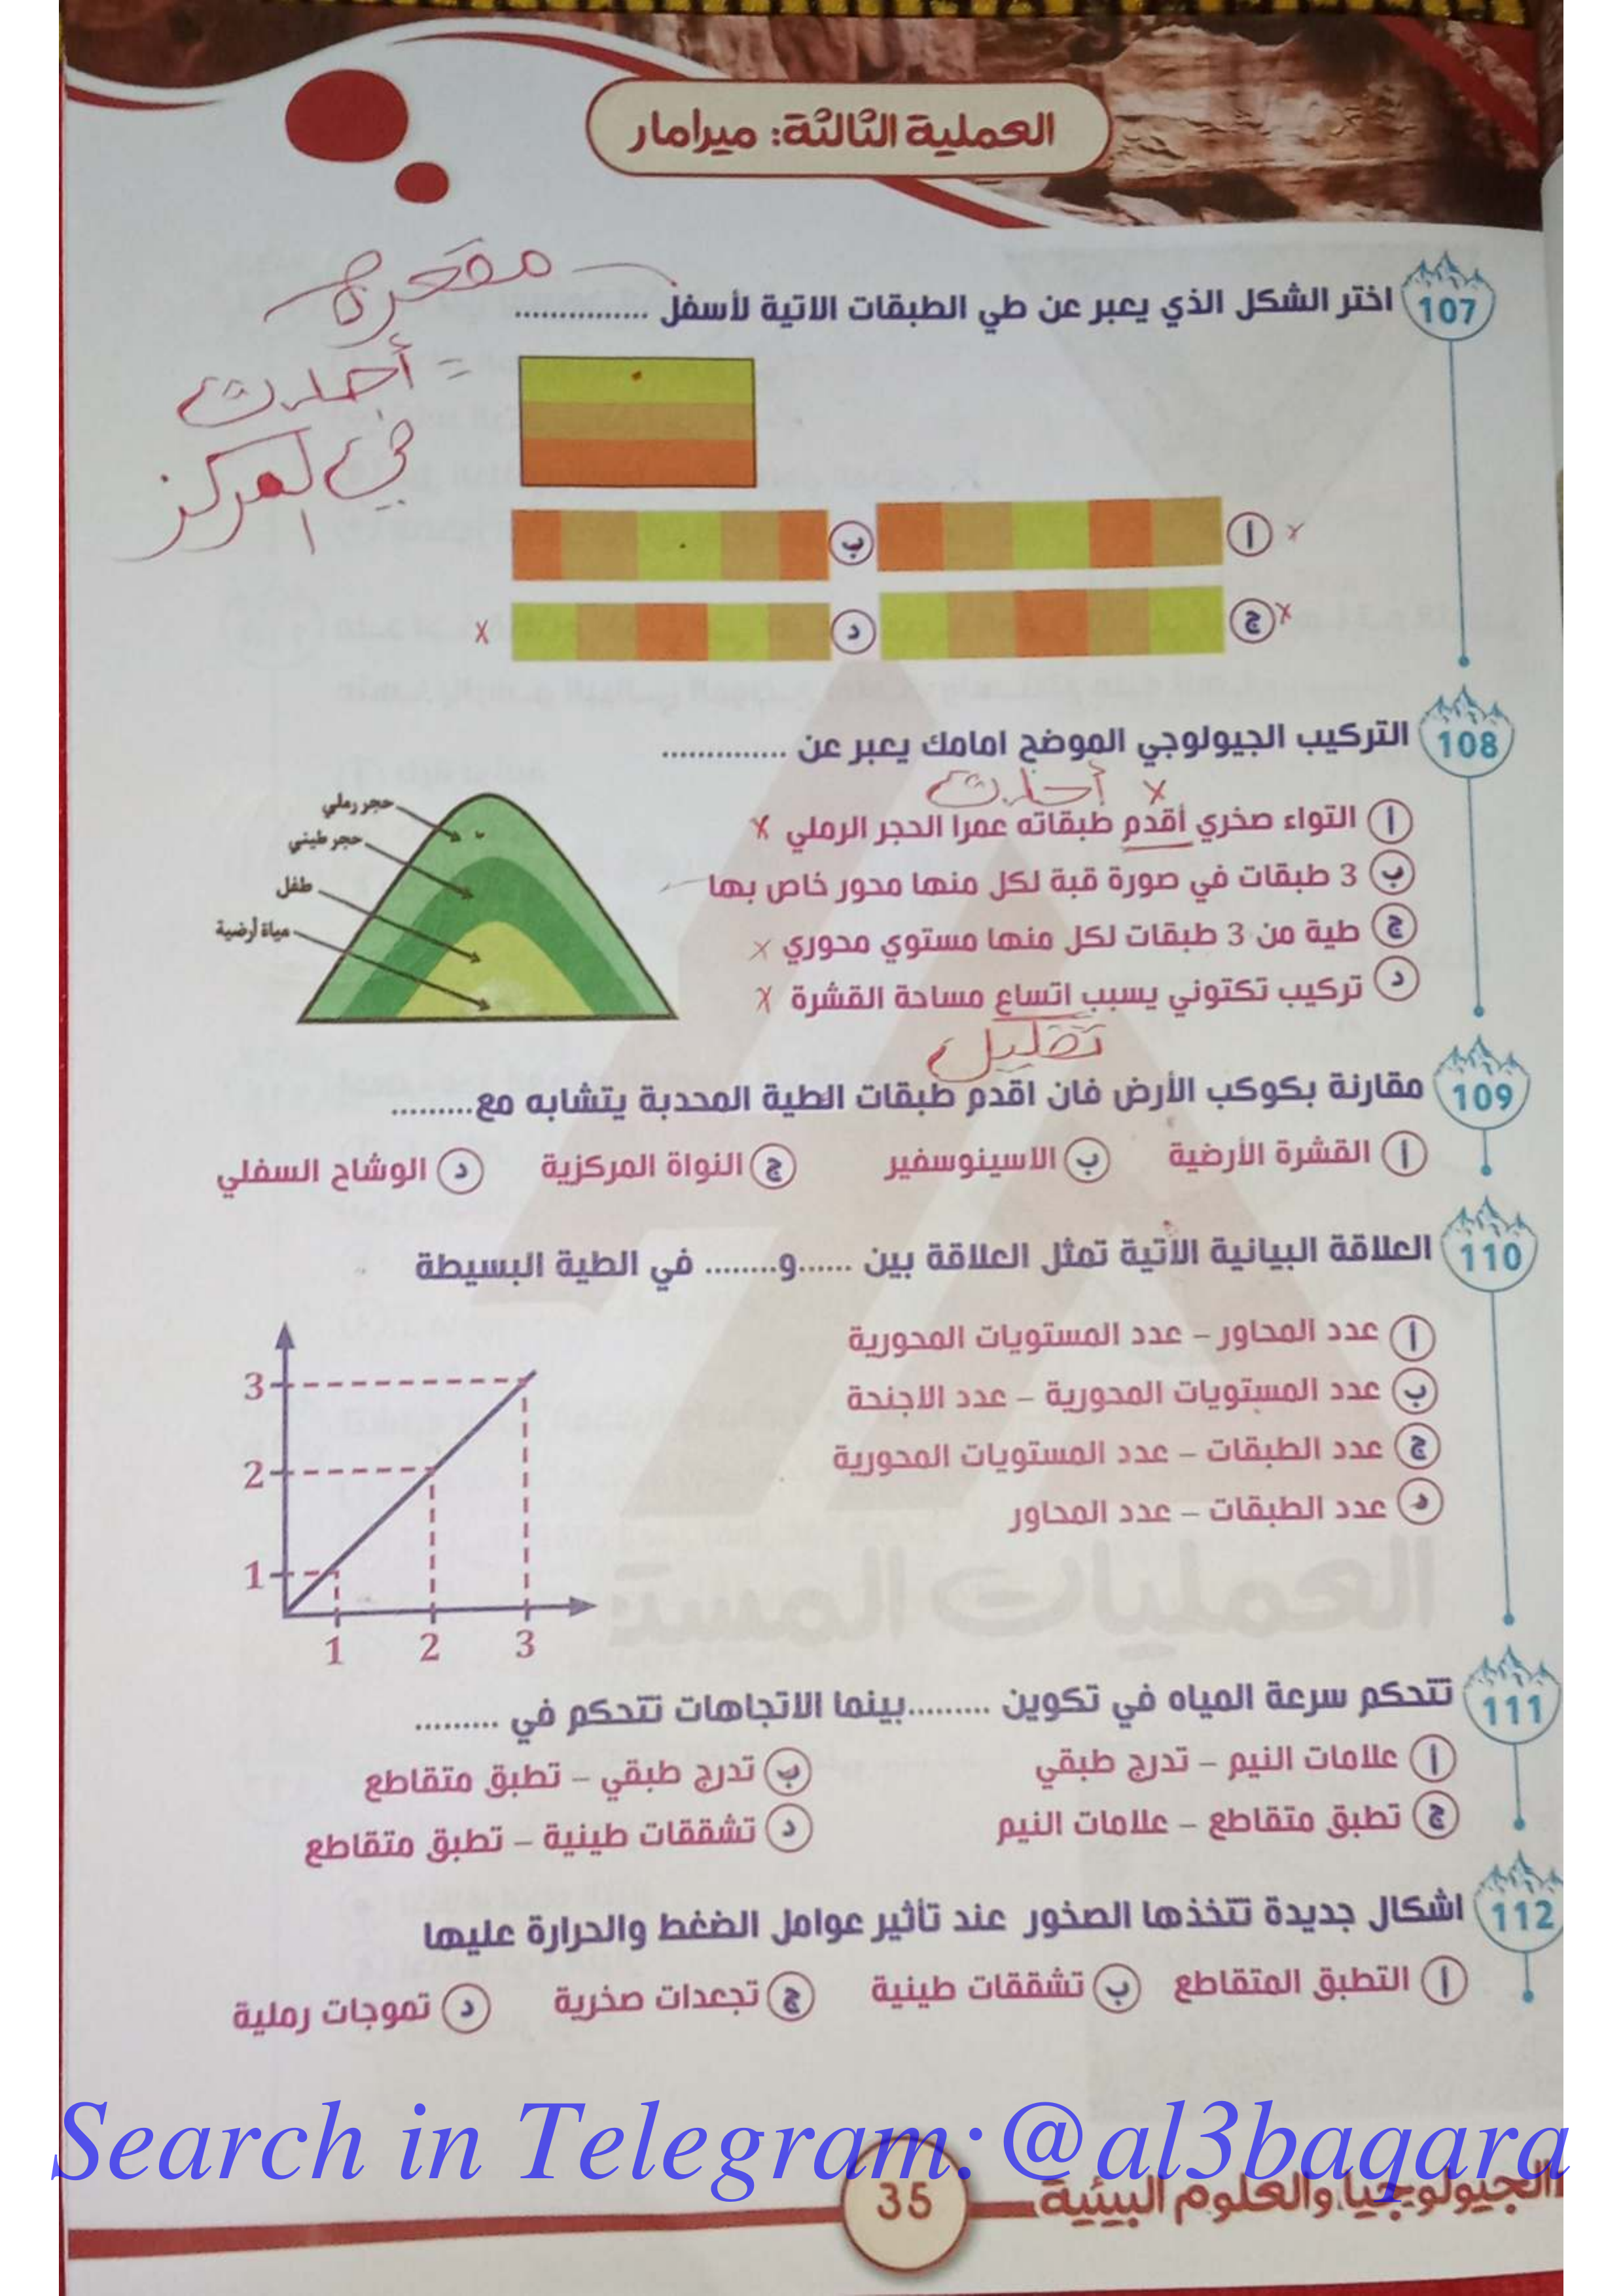 العملية الثالثة: ميرامار
مقعرة
= أحدث
في المركز
107 اختر الشكل الذي يعبر عن طي الطبقات الاتية لأسفل ...............
أ x
ب
ج x
د x
108 التركيب الجيولوجي الموضح امامك يعبر عن ..............
أحدث x
أ التواء صخري أقدم طبقاته عمرا الحجر الرملي x
ب 3 طبقات في صورة قبة لكل منها محور خاص بها
ج طية من 3 طبقات لكل منها مستوي محوري x
د تركيب تكتوني يسبب اتساع مساحة القشرة x
تقليل
حجر رملي
حجر طيني
طفل
مياة أرضية
109 مقارنة بكوكب الأرض فان اقدم طبقات الطية المحدبة يتشابه مع.........
أ القشرة الأرضية ب الاسينوسفير ج النواة المركزية د الوشاح السفلي
110 العلاقة البيانية الأتية تمثل العلاقة بين ......و........ في الطية البسيطة
أ عدد المحاور – عدد المستويات المحورية
ب عدد المستويات المحورية – عدد الاجنحة
ج عدد الطبقات – عدد المستويات المحورية
د عدد الطبقات – عدد المحاور
3
2
1
1 2 3
العمليات المسة
111 تتحكم سرعة المياه في تكوين .........بينما الاتجاهات تتحكم في .........
أ علامات النيم – تدرج طبقي ب تدرج طبقي – تطبق متقاطع
ج تطبق متقاطع – علامات النيم د تشققات طينية – تطبق متقاطع
112 اشكال جديدة تتخذها الصخور عند تأثير عوامل الضغط والحرارة عليها
أ التطبق المتقاطع ب تشققات طينية ج تجعدات صخرية د تموجات رملية
Search in Telegram:@al3baqara
الجيولوجيا والعلوم البيئية
35